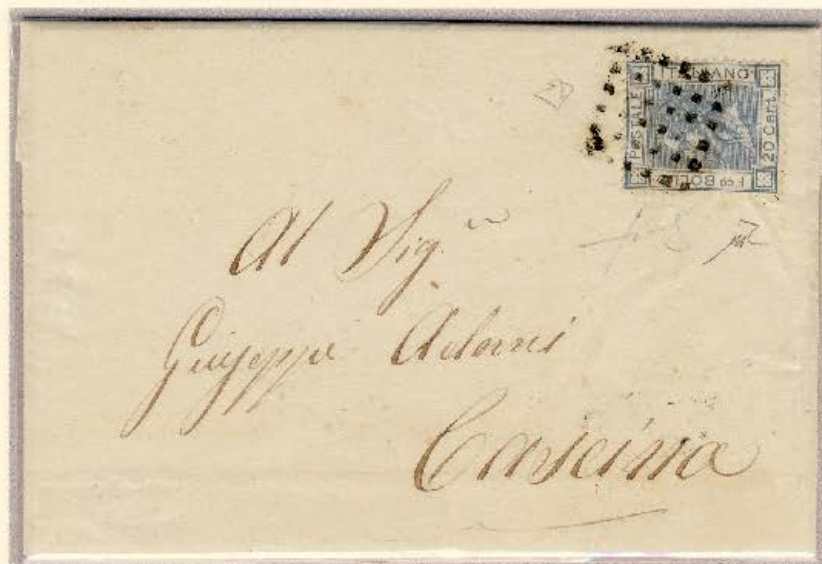 POSTALE ITALIANO 20 Cent. Fco BOLLO
Al Sig.
Giuseppe Adami
Cascina